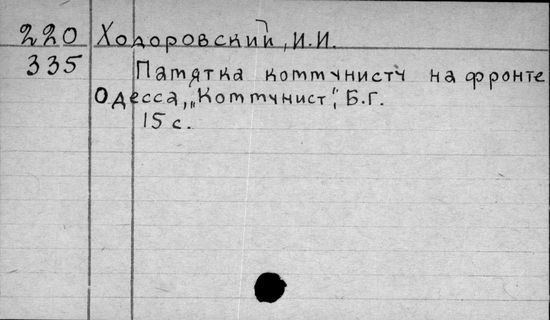 220 Ходоровский, И.И.
335 Памятка коммунисту на фронте
Одесса, „Коммунист", Б.г.
15 с.